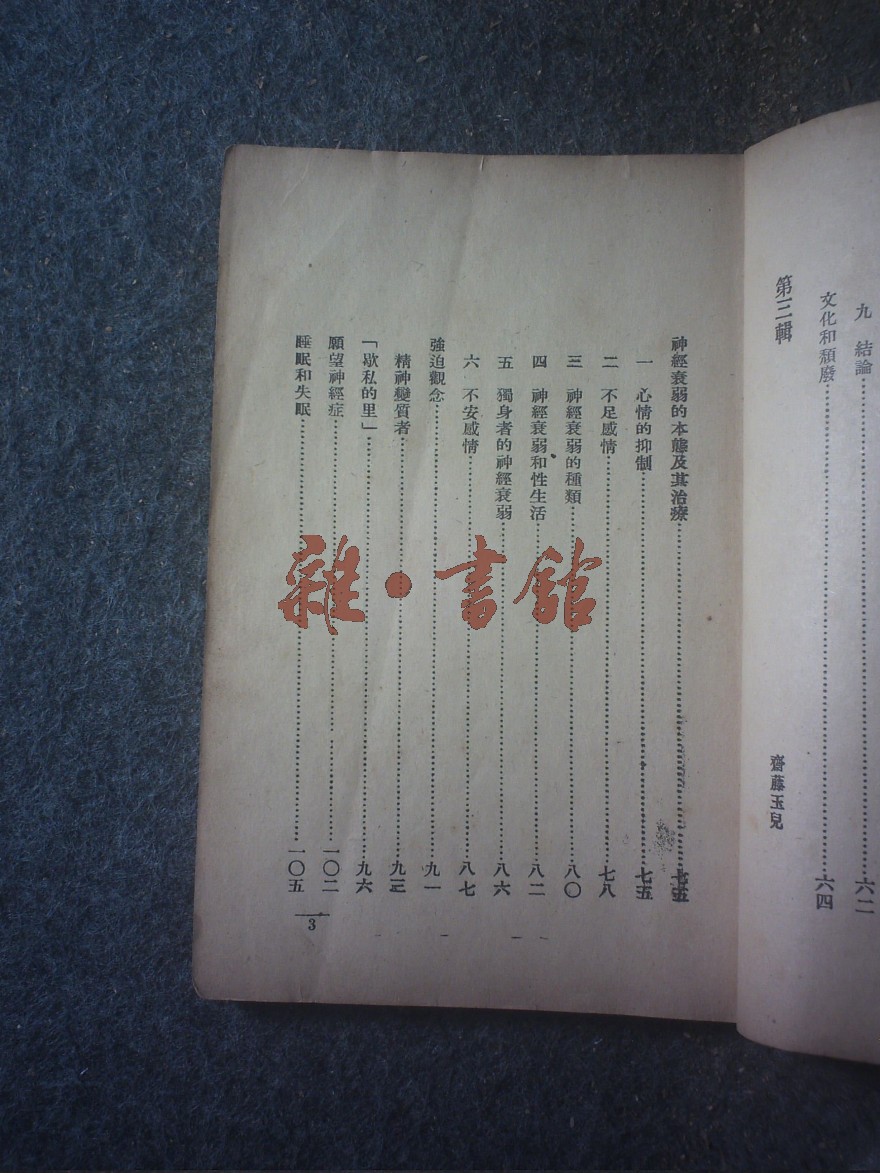 九　結論……六二
文化和頹廢……六四
第三輯　齋藤玉兒
神經衰弱的本態及其治療……七五
一　心情的抑制……七五
二　不足感情……七八
三　神經衰弱的種類……八〇
四　神經衰弱和性生活……八二
五　獨身者的神經衰弱……八六
六　不安感情……八七
強迫觀念……九一
精神變質者……九三
「歇私的里」……九六
願望神經症……一〇二
睡眠和失眠……一〇五
3
雜·書館